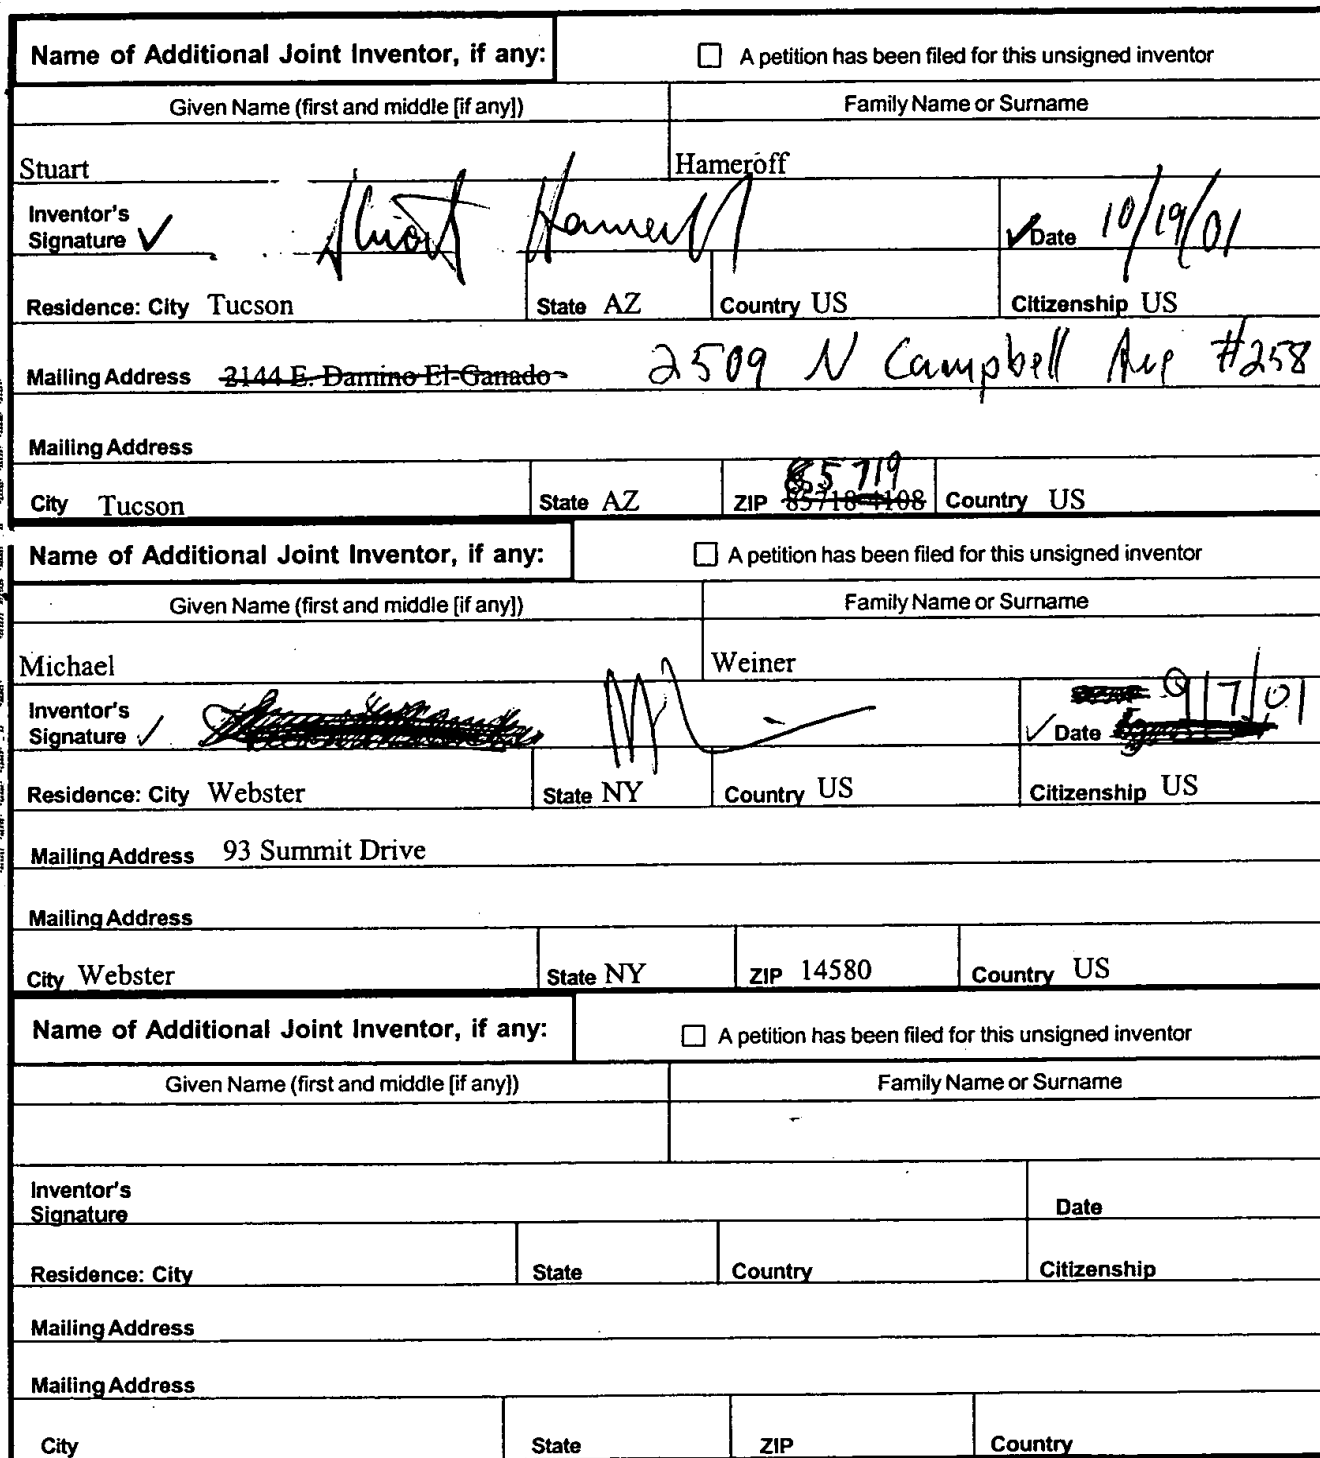 Name of Additional Joint Inventor, if any: A petition has been filed for this unsigned inventor
Given Name (first and middle [if any]) Family Name or Surname
Stuart Hameroff
Inventor's
Signature Stuart Hameroff Date 10/19/01
Residence: City Tucson State AZ Country US Citizenship US
Mailing Address 2144 E. Damino El-Ganado 2509 N Campbell Ave #258
Mailing Address
85719
City Tucson State AZ ZIP 85718-4108 Country US
Name of Additional Joint Inventor, if any: A petition has been filed for this unsigned inventor
Given Name (first and middle [if any]) Family Name or Surname
Michael Weiner
Inventor's
Signature Date 9/7/01
Residence: City Webster State NY Country US Citizenship US
Mailing Address 93 Summit Drive
Mailing Address
City Webster State NY ZIP 14580 Country US
Name of Additional Joint Inventor, if any: A petition has been filed for this unsigned inventor
Given Name (first and middle [if any]) Family Name or Surname
Inventor's
Signature Date
Residence: City State Country Citizenship
Mailing Address
Mailing Address
City State ZIP Country